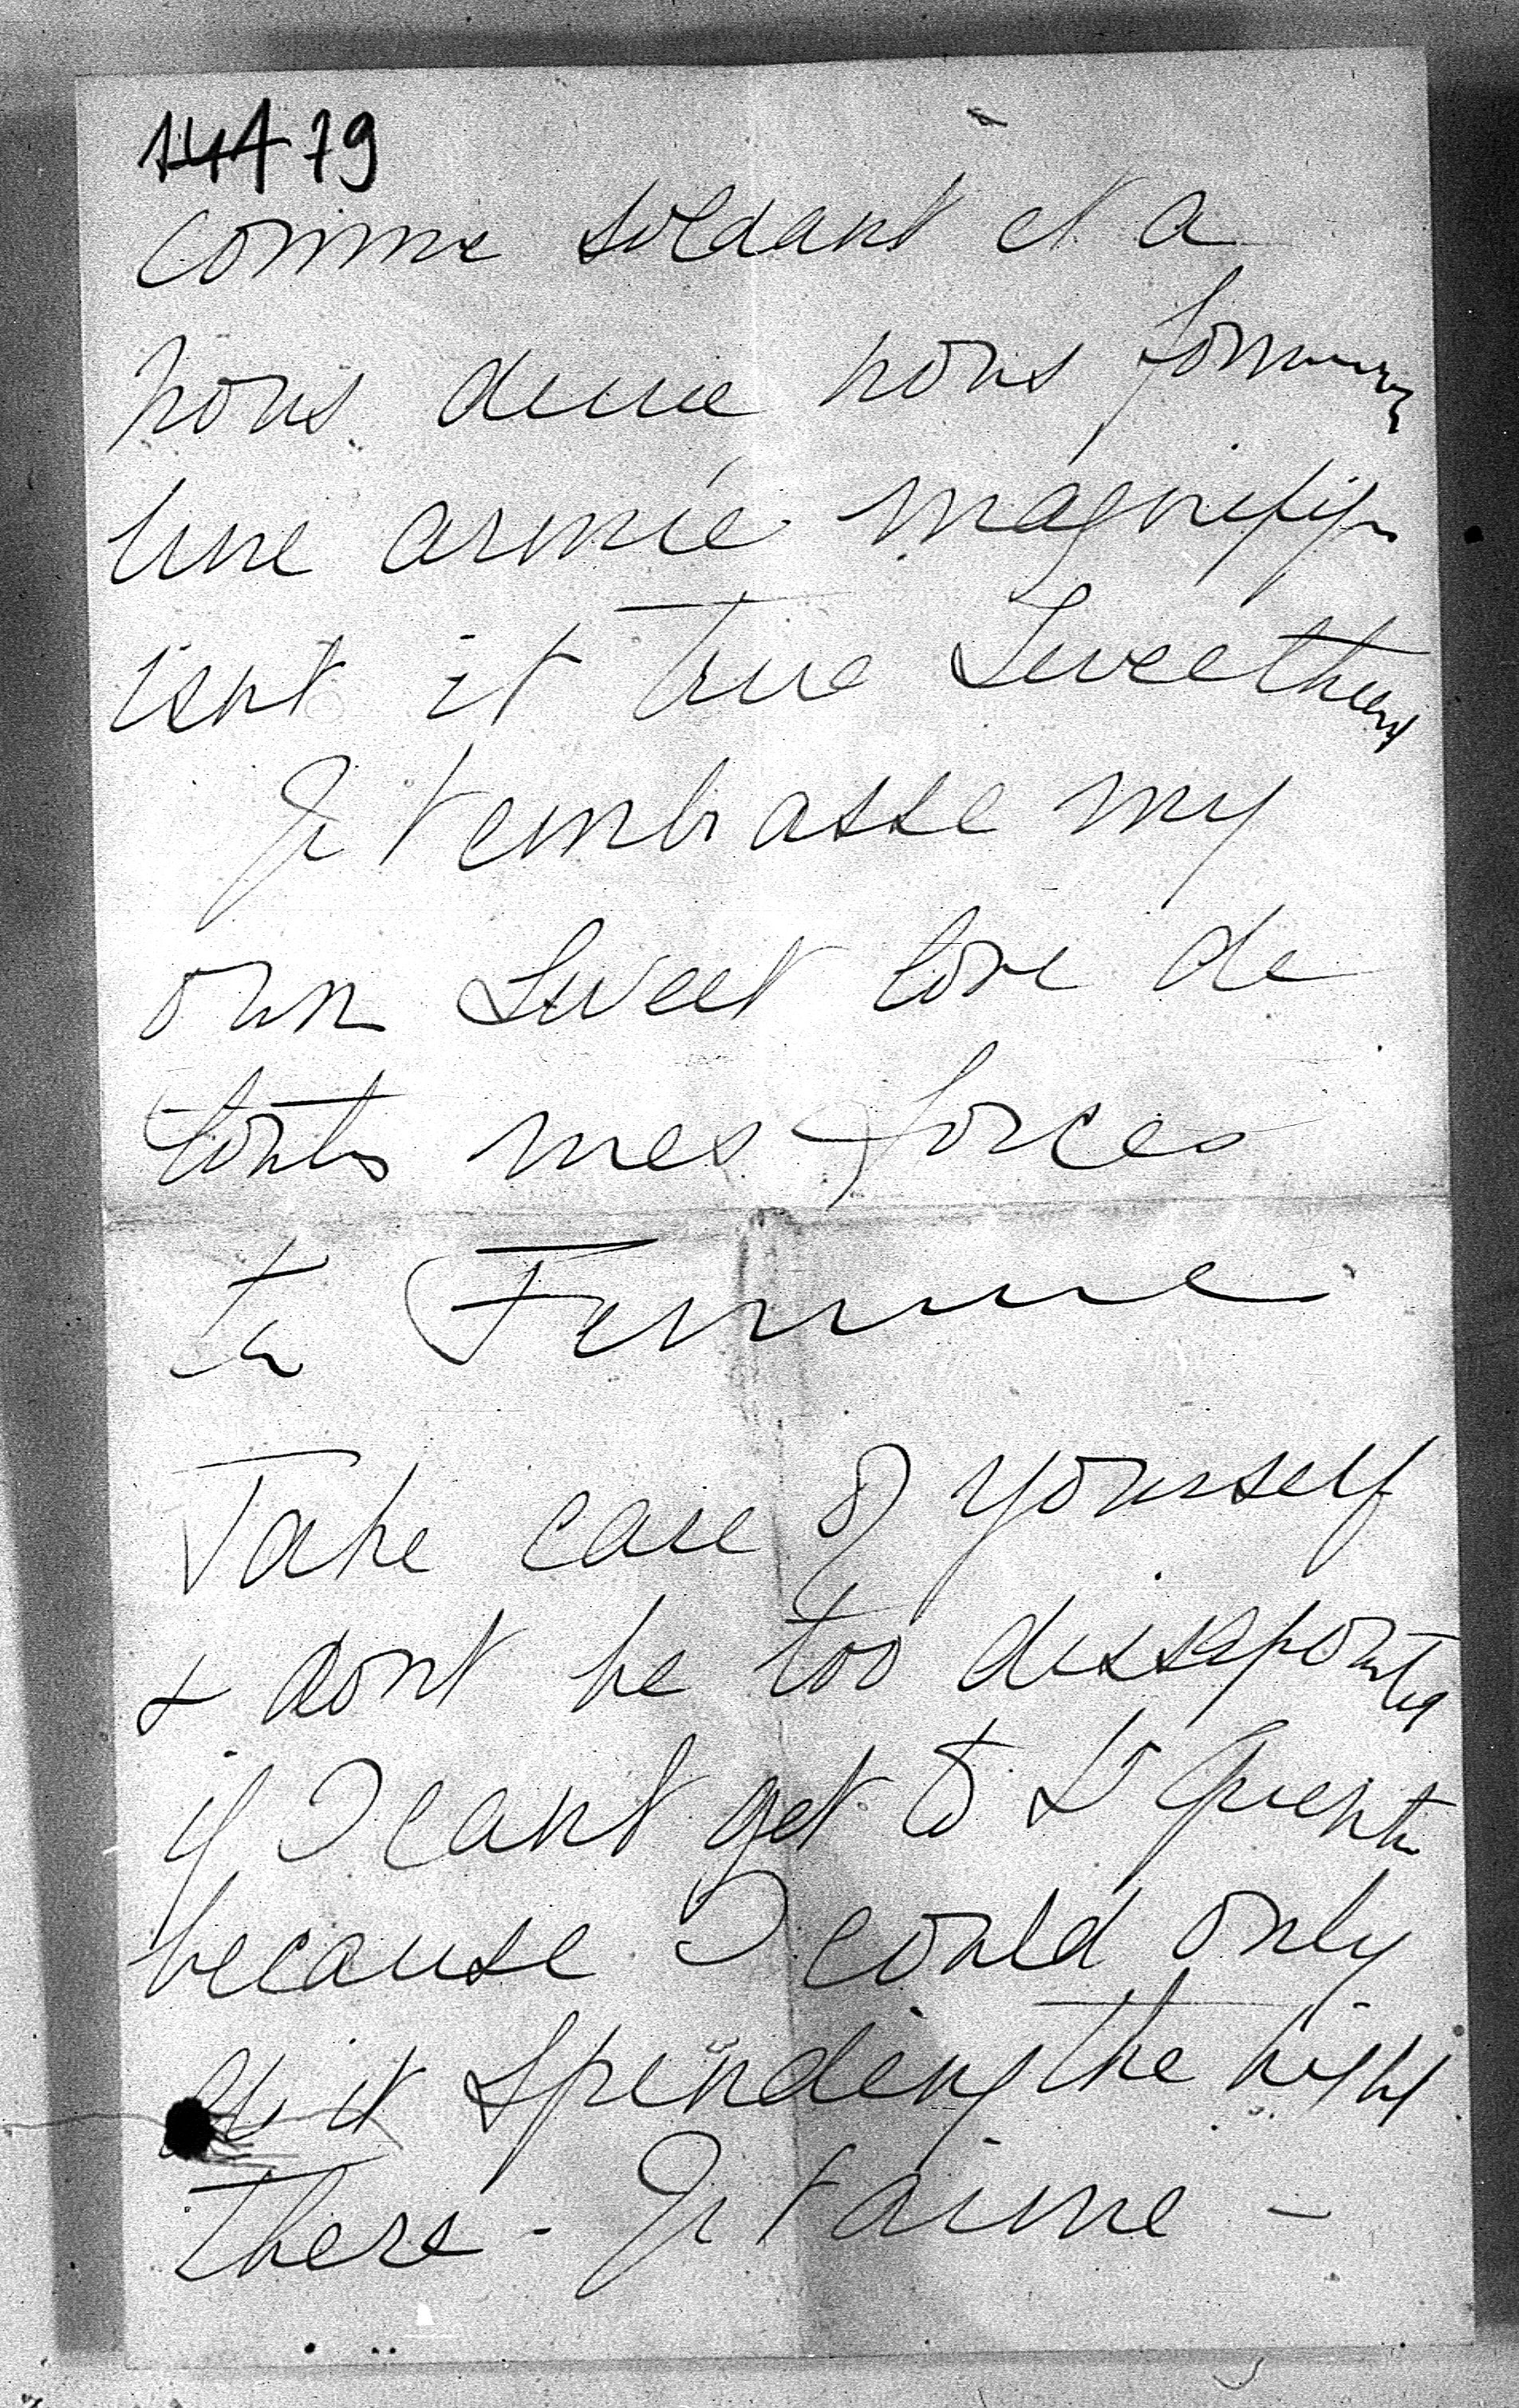 144 79
comme soldant et a
nous deux nous formons
une armée magnifiqu
isnt it true Sweetheart
Je t embrasse my
own Sweet love de
toutes mes forces
ta Femme
Take care of yourself
& dont be too dissapointed
if I cant get to St Quentin
because I could only
do it spending the night
there - Je t aime -